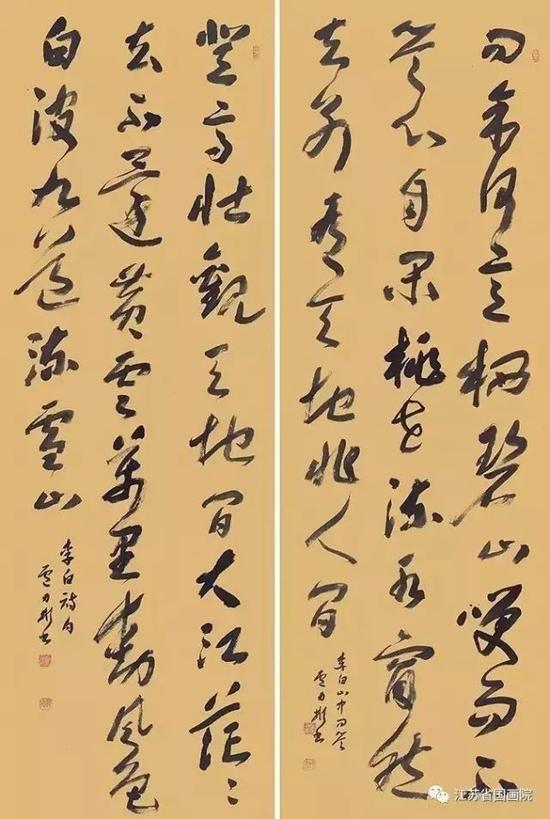 問余何意栖碧山笑而不
答心自閑桃花流水窅然
去別有天地非人間
李白山中問答
登高壯觀天地間大江茫〻
去不還黃雲萬里動風色
白波九道流雪山
李白詩句
江苏省国画院